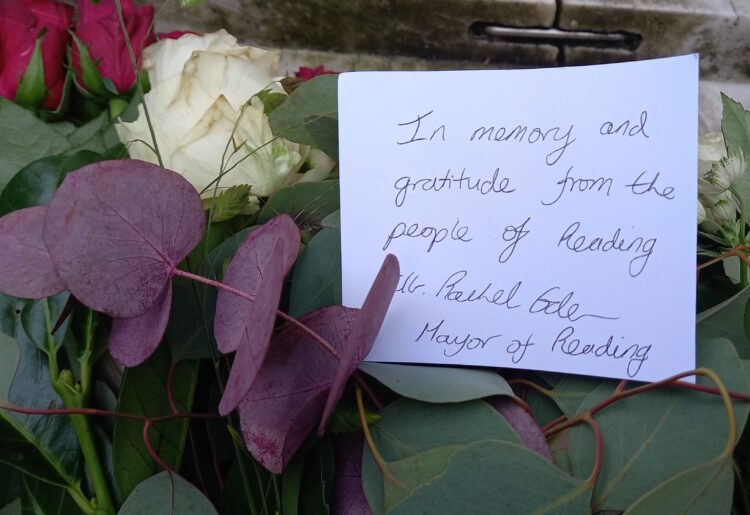 In memory and
gratitude from the
people of Reading
Cllr. Rachel Eden
Mayor of Reading